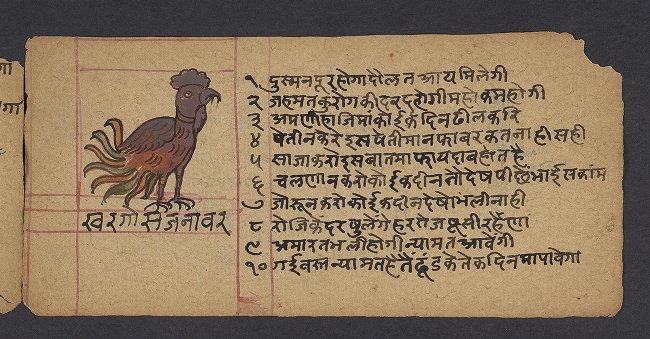 षरगोसजनावर
१ दुस्मनपूरहोगादौलतआयमिलेगी
२ जहमतकुरोगकीदरदहोगीमहोकमहोगी
३ अपणीहाजिमाकोईकदिनढीलकरि
४ षेतीनकरेइसषेतीमानफावरकतनाहीसही
५ साजाकरोइसबातमाफायदाबहोतहै
६ चलणानकरोकोईकदीन
७ जोरूनकरोकोईकदीनदेषोभलीनाही
८ रोजिकेदरषुलेंगेहररोजषुसीरहैणा
९ अमारतभलीहोगीन्यामतआवेंगी
१० गईवस्तन्यामतहैतैंढूंडकेतेकदिनमापावेगा